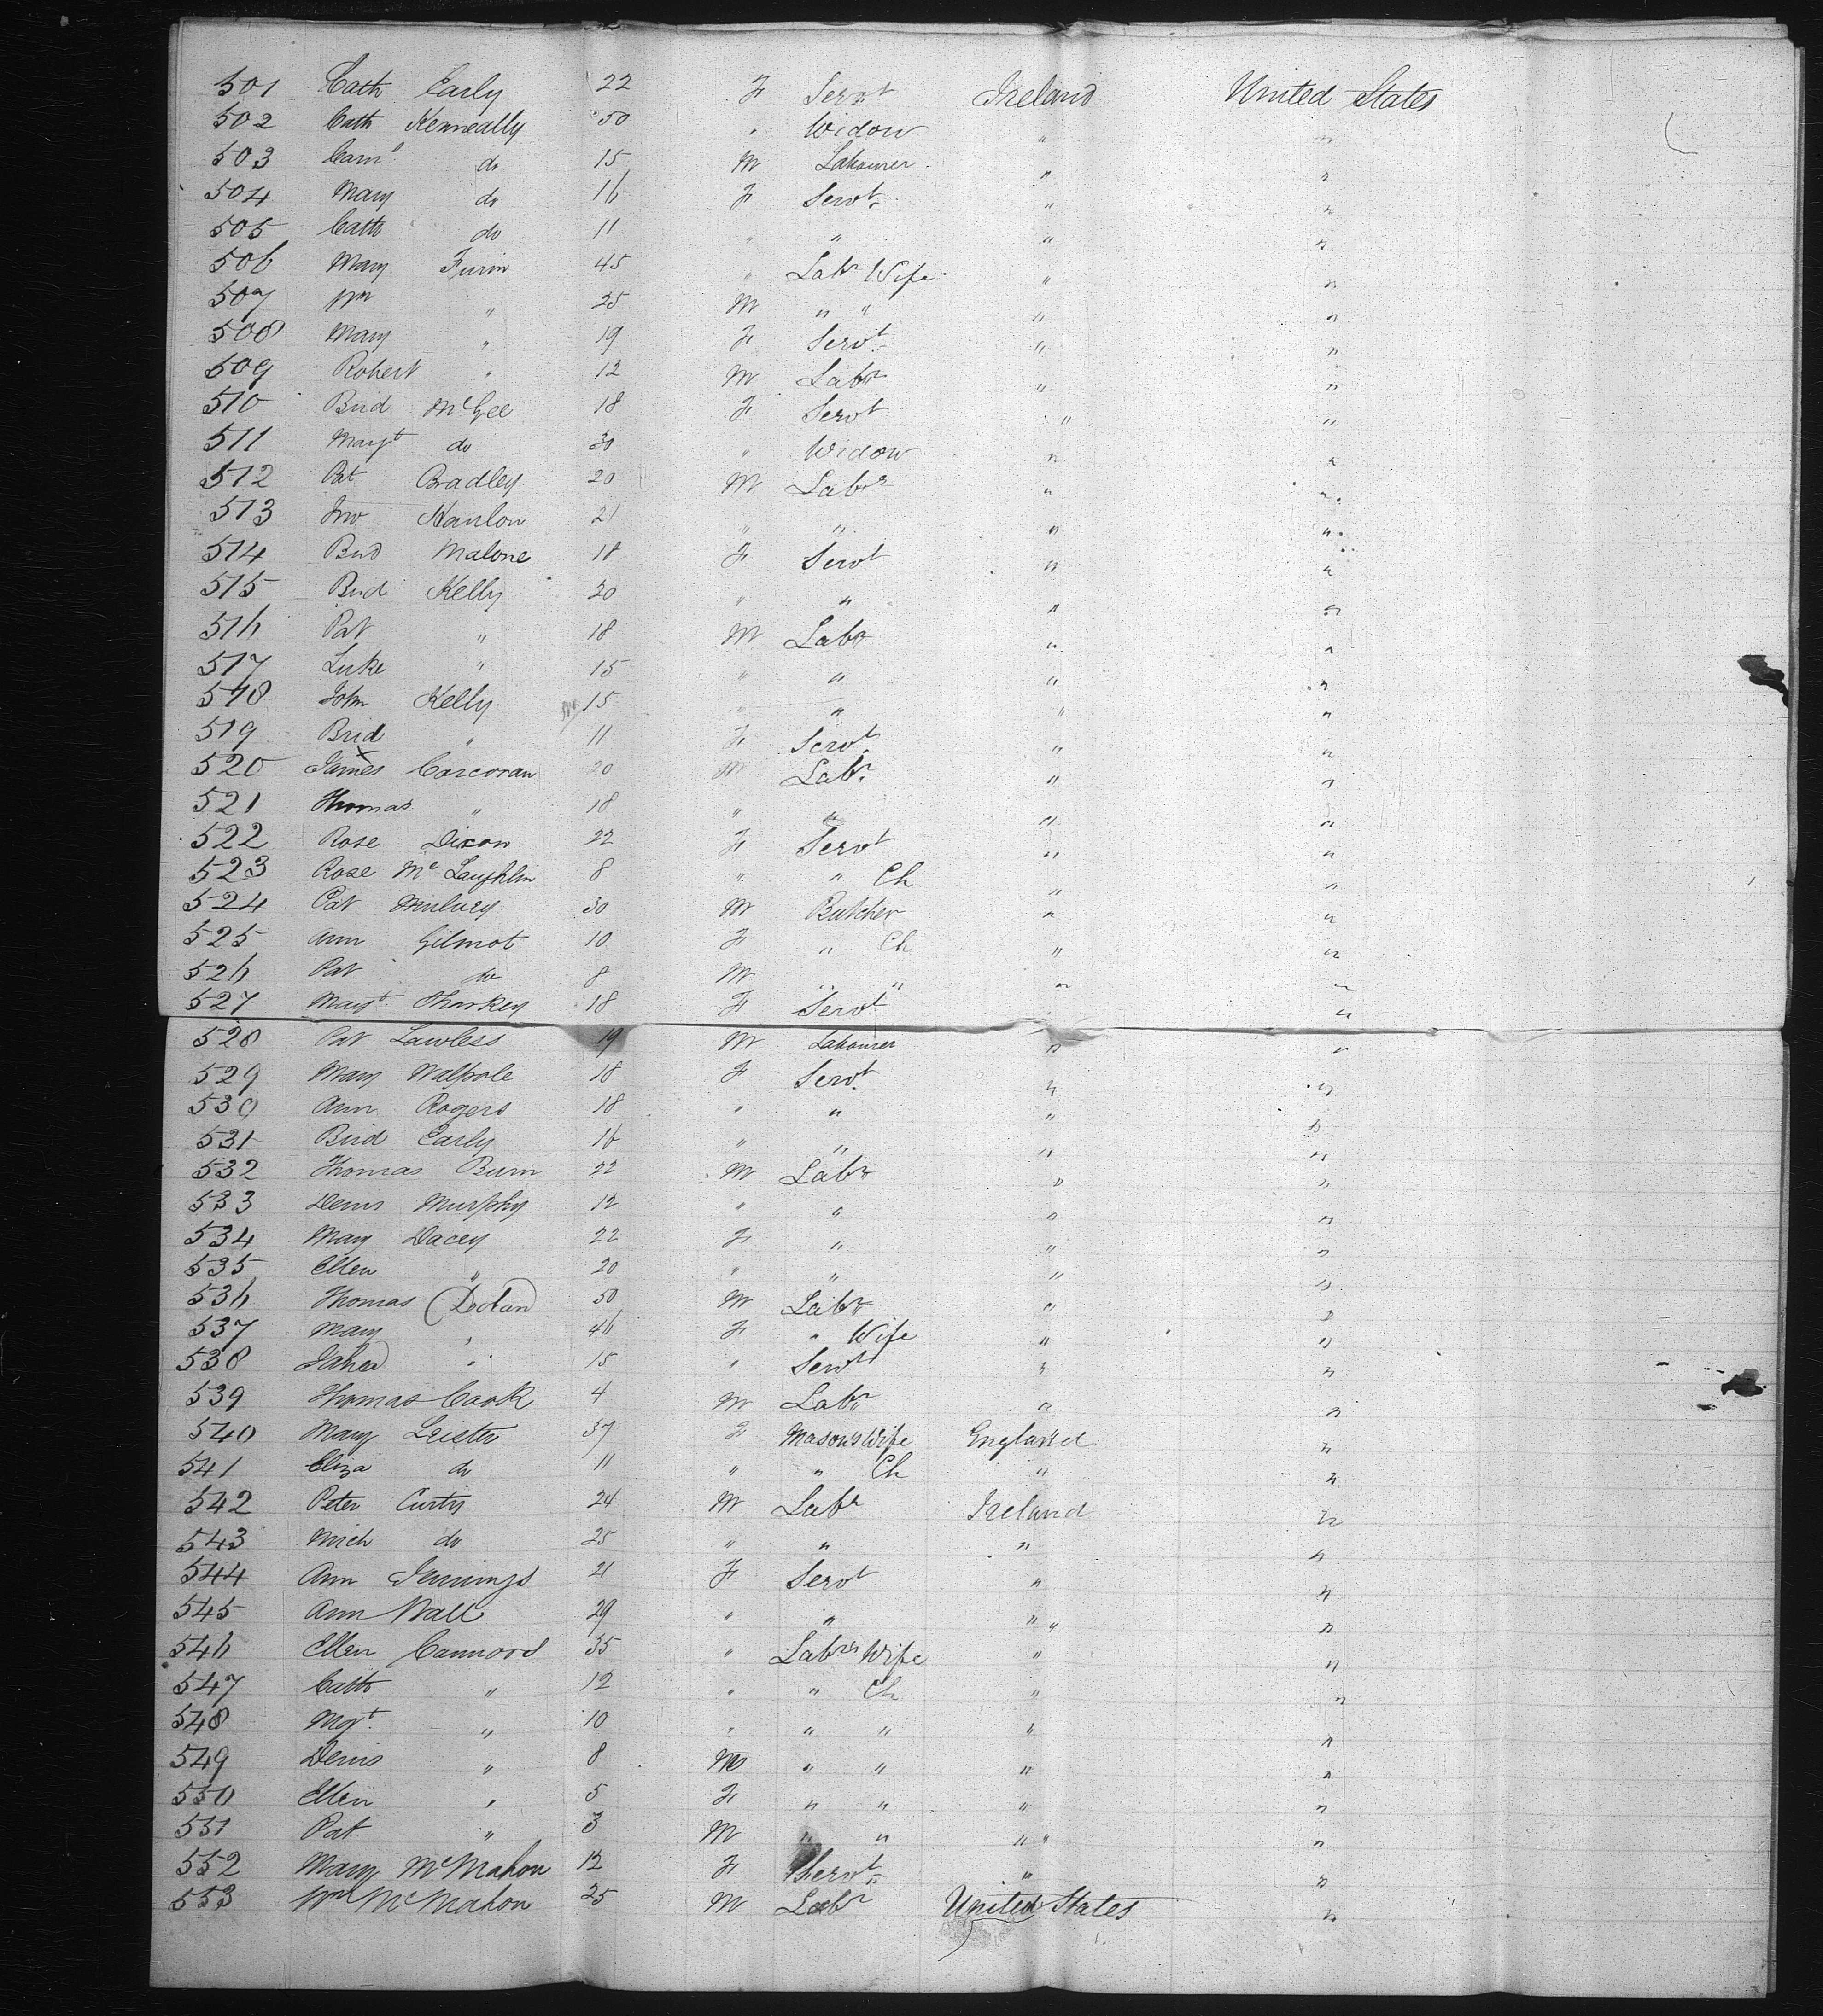 501 Cath Early 22 F Servt Ireland United States
502 Cath Kenneally 50 " Widow " "
503 do 15 M Labourer " "
504 Mary do 16 F Servt " "
505 Cath do 11 " " " "
506 Mary 45 " Labr Wife " "
507 Wm " 25 M " " " "
508 Mary " 19 F Servt " "
509 Robert " 12 M Labr " "
510 Brid McGee 18 F Servt " "
511 Margt do 30 " Widow " "
512 Pat Bradley 20 M Labr " "
513 Jno Hanlon 21 " " " "
514 Brid Malone 18 F Servt " "
515 Brid Kelly 20 " " " "
516 Pat " 18 M Labr " "
517 Luke " 15 " " " "
518 John Kelly 15 " " " "
519 Brid " 11 F Servt " "
520 James Corcoran 20 M Labr " "
521 Thomas " 18 " " " "
522 Rose Dixon 22 F Servt " "
523 Rose McLaughlin 8 " " Ch " "
524 Pat Mulvey 30 M Butcher " "
525 Ann Gilmot 10 F " Ch " "
526 Pat do 8 M " " " "
527 Margt Sharkey 18 F Servt " "
528 Pat Lawless 19 M Labourer " "
529 Mary Walpole 18 F Servt " "
530 Ann Rogers 18 " " " "
531 Brid Early 16 " " " "
532 Thomas Burn 22 M Labr " "
533 Denis Murphy 12 " " " "
534 Mary Dacey 22 F " " "
535 Ellen " 20 " " " "
536 Thomas 50 M Labr " "
537 Mary " 46 F " Wife " "
538 " 15 " Servt " "
539 Thomas Cook 4 M Labr " "
540 Mary Leister 37 F Masons Wife England "
541 Eliza do 11 " " Ch " "
542 Peter Curtis 24 M Labr Ireland "
543 Mich do 25 " " " "
544 Ann Jennings 21 F Servt " "
545 Ann Wall 29 " " " " "
546 Ellen Cannors 35 " Labrs Wife " "
547 Cath " 12 " " Ch " "
548 Mgt " 10 " " " " "
549 Denis " 8 M " " " "
550 Ellen " 5 F " " " "
551 Pat " 3 M " " " " "
552 Mary McMahon 12 F Servt " "
553 Wm McMahon 25 M Labr United States "